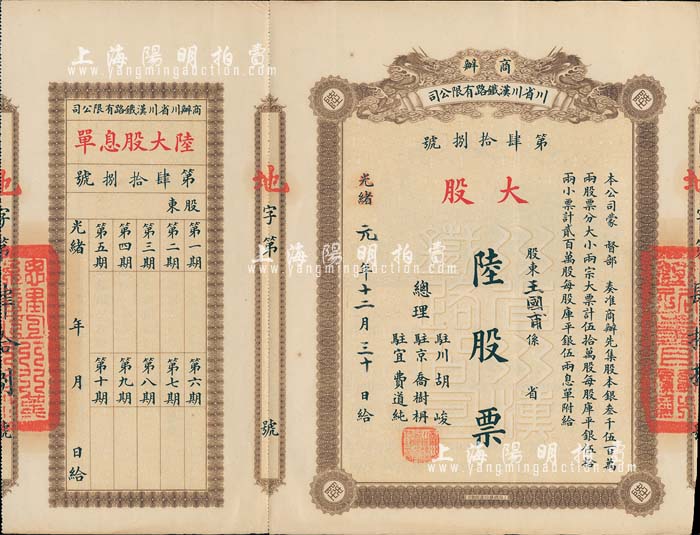 上海陽明拍賣
www.yangmingauction.com
商辦
川省川漢鐵路有限公司
第肆拾捌號
大股
本公司蒙 督部 奏准商辦先集股本銀叁千伍百萬
兩股票分大小兩宗大票計伍拾萬股每股庫平銀伍拾
兩小票計貳百萬股每股庫平銀伍兩息單附給
股東王國甯係 省
陸股票
總理
駐川胡峻
駐京喬樹枬
駐宜費道純
光緒元年十二月三十日給
地字第
號
商辦川省川漢鐵路有限公司
陸大股息單
第肆拾捌號
股東
第一期
第二期
第三期
第四期
第五期
第六期
第七期
第八期
第九期
第十期
光緒 年 月 日給
地字第肆拾捌號
上海陽明拍賣
www.yangmingauction.com
上海陽明拍賣
www.yangmingauction.com